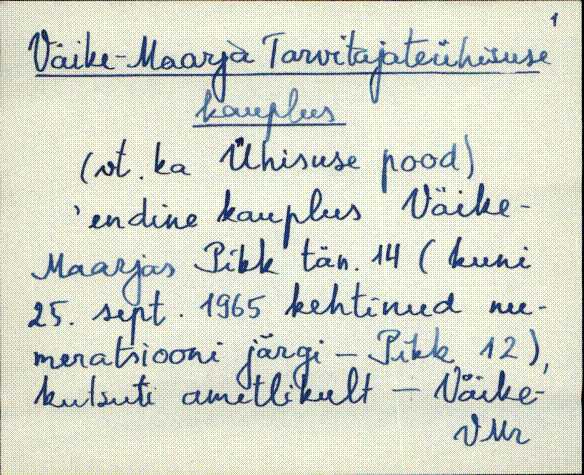 1
Väike-Maarja Tarvitajateühisuse
kauplus
(vt. ka Ühisuse pood)
'endine kauplus Väike-
Maarjas Pikk tän. 14 (kuni
25. sept. 1965 kehtinud nu-
meratsiooni järgi - Pikk 12),
kutsuti ametlikult - Väike-
VMr